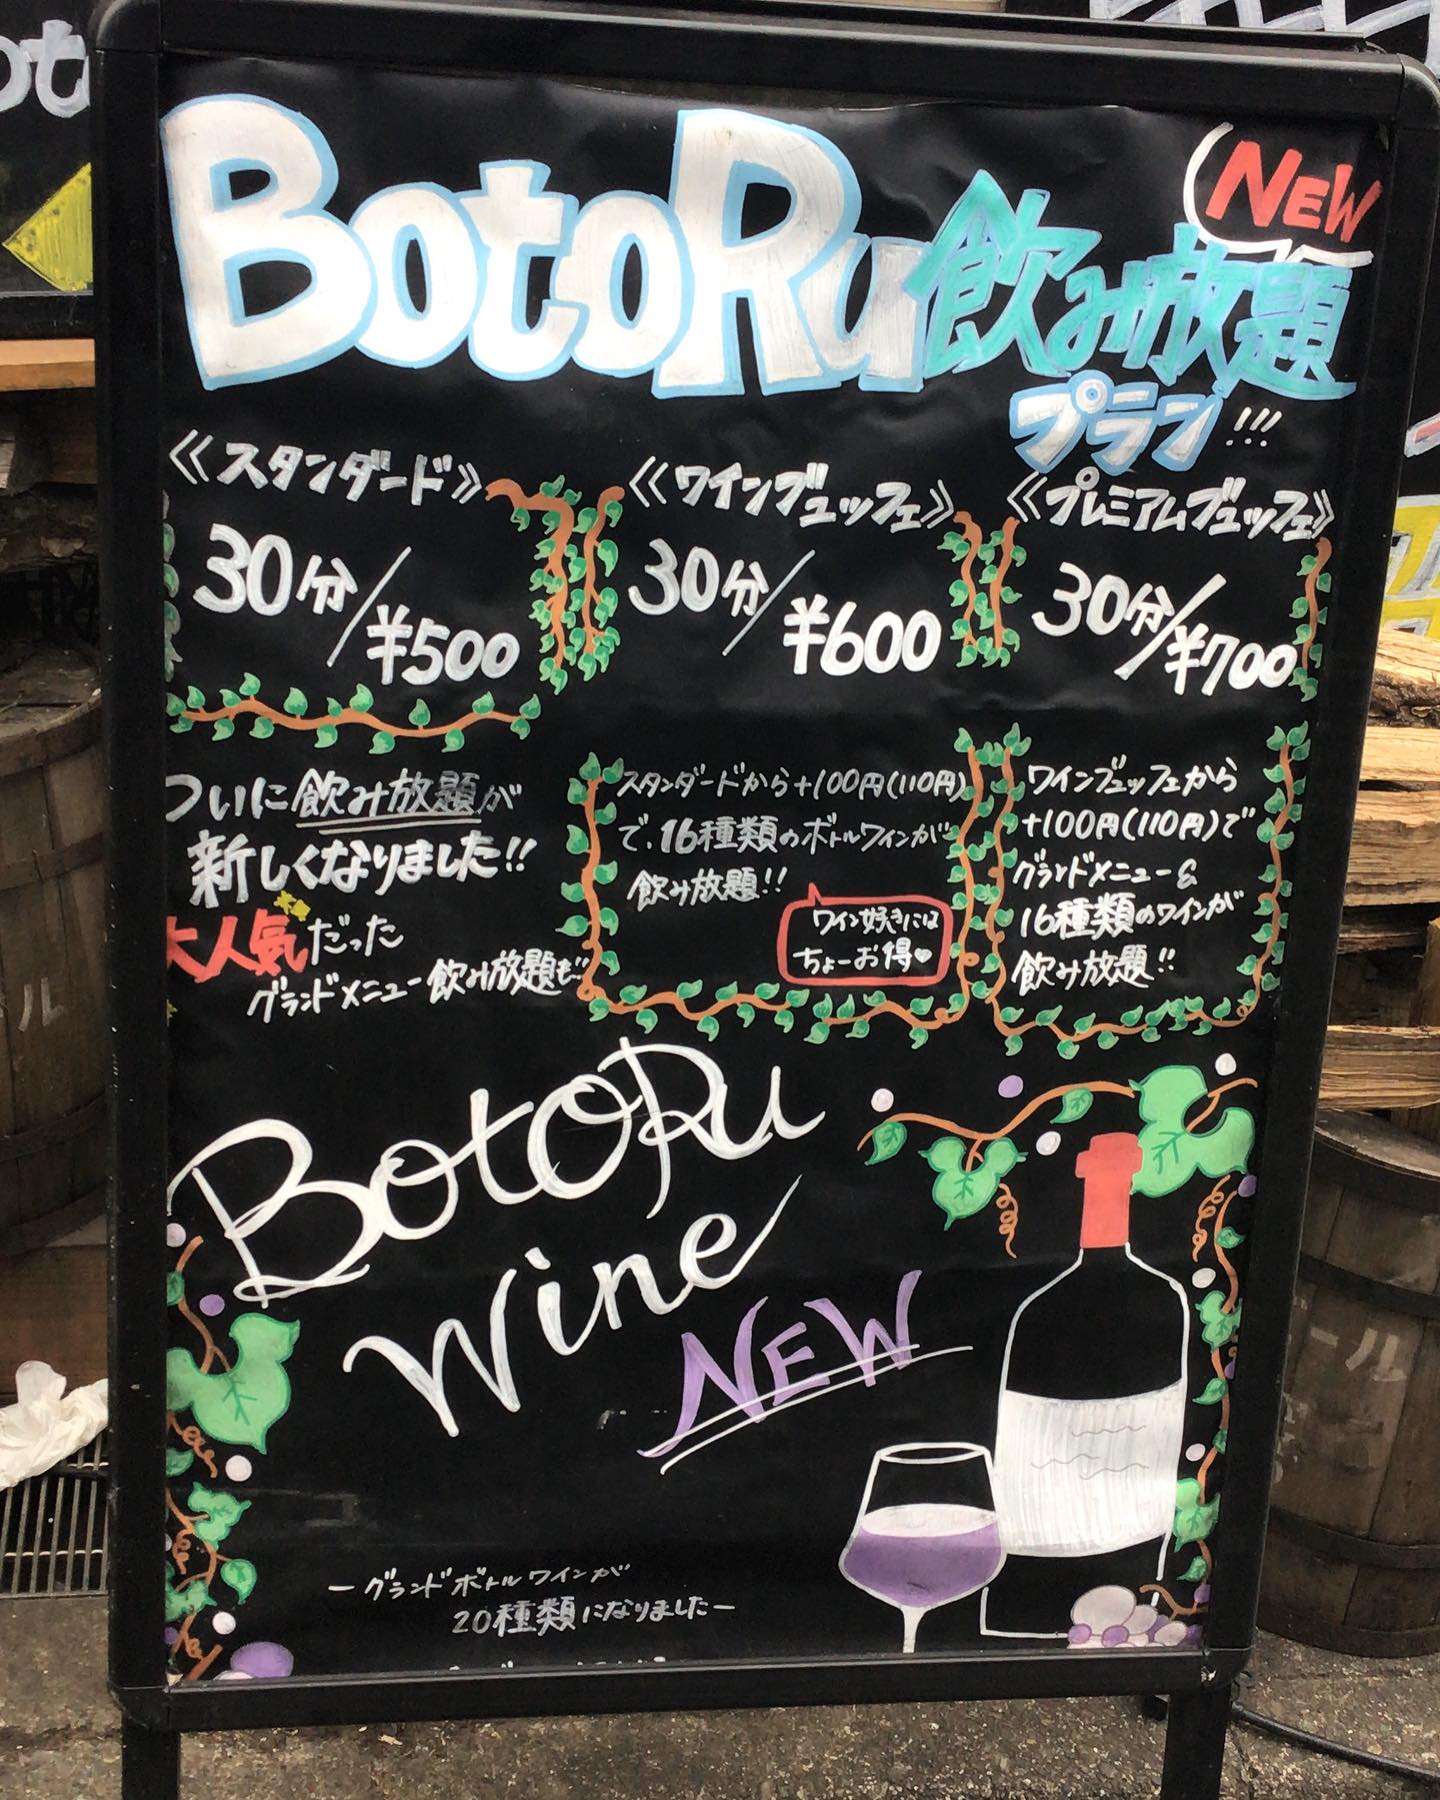 BotoRu 飲み放題
NEW
プラン!!!
《スタンダード》
30分/¥500
《ワインブュッフェ》
30分/¥600
《プレミアムブュッフェ》
30分/¥700
ついに飲み放題が
新しくなりました!!
大人気だった
グランドメニュー飲み放題も!!
スタンダードから+100円(110円)
で、16種類のボトルワインが
飲み放題!!
ワイン好きには
ちょーお得♥
ワインブュッフェから
+100円(110円)で
グランドメニュー&
16種類のワインが
飲み放題!!
BotoRu
Wine
NEW
ーグランドボトルワインが
20種類になりましたー